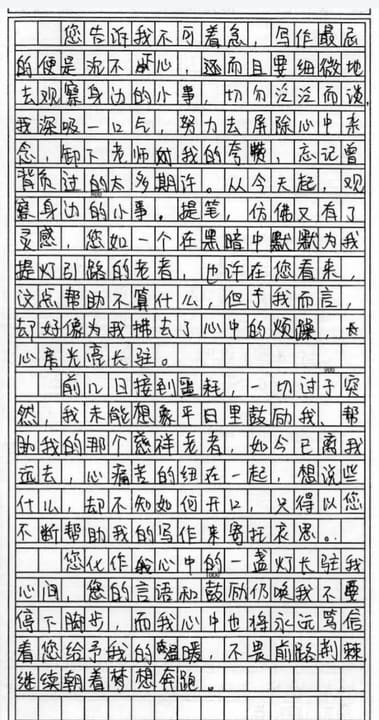 您告诉我不可着急，写作最忌
的便是沉不下心，还而且要细微地
去观察身边的小事，切勿泛泛而谈，
我深吸一口气，努力去屏除心中杂
念，卸下老师对我的夸赞，忘记曾
背负过的太多期许。从今天起，观
察身边的小事。提笔，仿佛又有了
灵感，您如一个在黑暗中默默为我
提灯引路的老者，也许在您看来，
这点帮助不算什么，但于我而言，
却好像为我拂去了心中的烦躁，
心扉光亮长驻。
900
前几日接到噩耗，一切过于突
然，我未能想象平日里鼓励我、帮
助我的那个慈祥老者，如今已离我
远去，心痛苦的纽在一起，想说些
什么，却不知如何开口，只得以您
不断帮助我的写作来寄托哀思。
您化作我心中的一盏灯长驻我
1000
心间，您的言语和鼓励仍唤我不要
停下脚步，而我心中也将永远笃信
着您给予我的温暖，不畏前路荆棘，
继续朝着梦想奔跑。